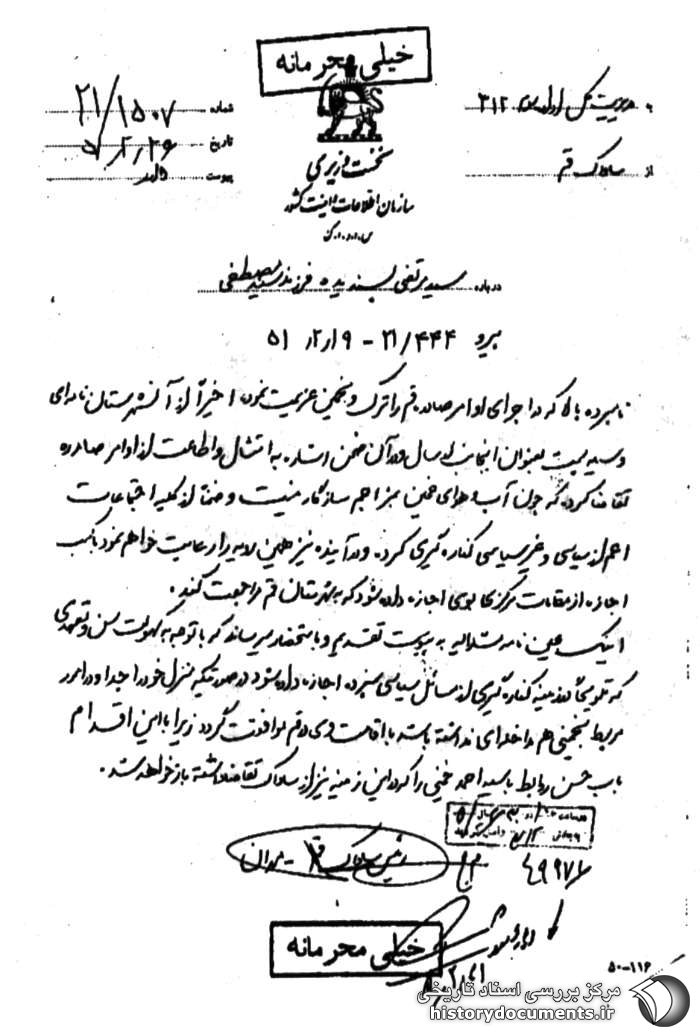 خیلی محرمانه
به مدیریت کل اداره سوم ۳۱۲
از ساواک قم
شماره ۲۱/۱۵۰۷
تاریخ ۵۱/۲/۲۶
پیوست دارد
نخست وزیری
سازمان اطلاعات و امنیت کشور
س.ا.و.ا.ک
درباره سید مرتضی پسندیده فرزند سید مصطفی
پیرو ۲۱/۴۴۴ - ۵۱/۲/۹
نامبرده بالا که در اجرای اوامر صادره قم را ترک و بخمین عزیمت نموده اخیراً از آن شهرستان نامه‌ای
وسیله پست بعنوان اینجانب ارسال و در آن ضمن اشاره به امتثال و اطاعت از اوامر صادره
تقاضا کرده که چون آب و هوای خمین بمزاجم سازگار نیست و ضمناً از کلیه اجتماعات
اعم از سیاسی و غیر سیاسی کناره گیری کرده و در آینده نیز همین رویه را رعایت خواهم نمود با کسب
اجازه از مقامات مرکز بوی اجازه داده شود که به شهرستان قم مراجعت کند.
اینک عین نامه مشارالیه به پیوست تقدیم و باستحضار میرساند که با توجه به کهولت سن و تعهدی
که تلویحاً در زمینه کناره گیری از مسائل سیاسی سپرده اجازه داده شود در صورتیکه منزل خود را جدا و در امور
مربوط بخمینی هم مداخله‌ای نداشته باشد با اقامت وی در قم موافقت گردد زیرا با این اقدام
باب حسن روابط با سید احمد خمینی را که در این زمینه نیز از ساواک تقاضا داشته باز خواهد شد.
رئیس ساواک قم - مهران
۴۹۹۷۶
خیلی محرمانه
۵۰-۱۱۶
مرکز بررسی اسناد تاریخی
historydocuments.ir